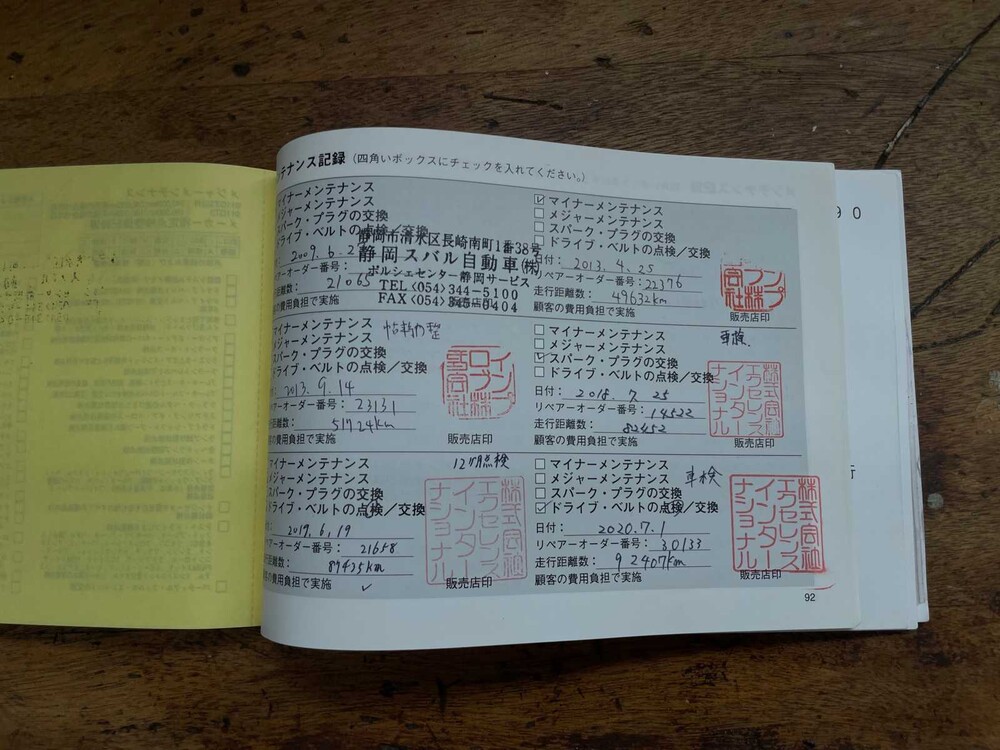 テナンス記録 (四角いボックスにチェックを入れてください。)
マイナーメンテナンス
メジャーメンテナンス
スパーク・プラグの交換
ドライブ・ベルトの点検/交換
2009.6.2
アーオーダー番号:
距離数: 21065
の費用負担で実施
静岡市清水区長崎南町1番38号
静岡スバル自動車(株)
ポルシェセンター静岡サービス
TEL<054>344-5100
FAX<054>345-0404
マイナーメンテナンス
メジャーメンテナンス
スパーク・プラグの交換
ドライブ・ベルトの点検/交換
日付: 2013. 4. 25
リペアーオーダー番号: 22376
走行距離数: 49632km
顧客の費用負担で実施
販売店印
マイナーメンテナンス
メジャーメンテナンス
スパーク・プラグの交換
ドライブ・ベルトの点検/交換
: 2013. 9. 14
アーオーダー番号: 23131
距離数: 51724km
の費用負担で実施
インプ
ロブン株
式会社
販売店印
マイナーメンテナンス
メジャーメンテナンス
スパーク・プラグの交換
ドライブ・ベルトの点検/交換
車検.
日付: 2018. 7. 25
リペアーオーダー番号: 14522
走行距離数: 82452
顧客の費用負担で実施
株式会社
エクセレンス
インター
ナショナル
販売店印
マイナーメンテナンス
メジャーメンテナンス
スパーク・プラグの交換
ドライブ・ベルトの点検/交換
12ヶ月点検
: 2019. 6. 19
アーオーダー番号: 21658
距離数: 89425km
の費用負担で実施
株式会社
エクセレンス
インター
ナショナル
販売店印
マイナーメンテナンス
メジャーメンテナンス
スパーク・プラグの交換
ドライブ・ベルトの点検/交換
車検
日付: 2020.7.1
リペアーオーダー番号: 30133
走行距離数: 92407km
顧客の費用負担で実施
株式会社
エクセレンス
インター
ナショナル
販売店印
92
90